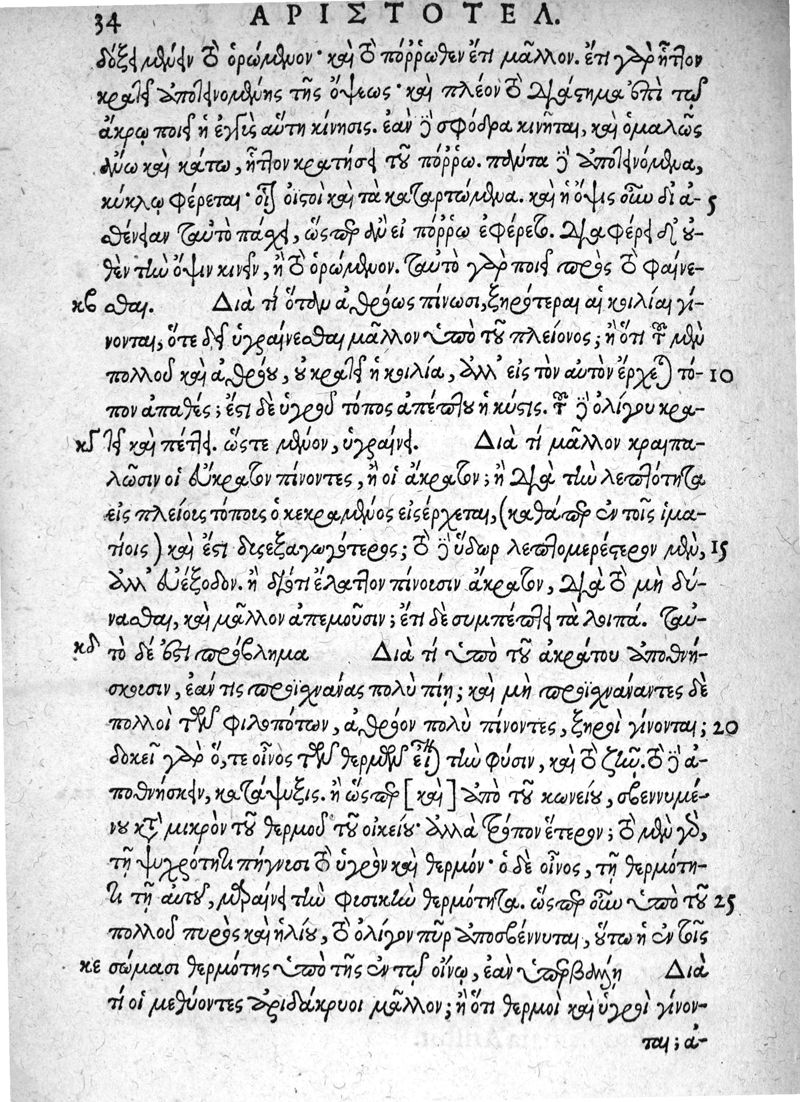 34 ΑΡΙΣΤΟΤΕΛ.
δόξει μένειν τὸ ὁρώμενον· καὶ τὸ πόῤῥωθεν ἔτι μᾶλλον. ἔτι γὰρ ἧττον
κρατεῖ ἀποτεινομένης τῆς ὄψεως· καὶ πλέον τὸ διάστημα ἐπὶ τῷ
ἄκρῳ ποιεῖ ἡ ἐγγὺς αὕτη κίνησις. ἐὰν δὲ σφόδρα κινῆται, καὶ ὁμαλῶς
ἄνω καὶ κάτω, ἧττον κρατήσει τοῦ πόῤῥω. πάντα δὲ ἀποτεινόμενα,
κύκλῳ φέρεται· οἷον ὀϊστοὶ καὶ τὰ καταρτώμενα. καὶ ἡ ὄψις οὖν δι' ἀ- 5
σθένειαν ταὐτὸ πάσχει, ὥσπερ ἂν εἰ πόῤῥω ἐφέρετο. διαφέρει δ' οὐ-
θὲν τὴν ὄψιν κινεῖν, ἢ τὸ ὁρώμενον. ταὐτὸ γὰρ ποιεῖ πρὸς τὸ φαίνε-
κβ σθαι. Διὰ τί ὅταν ἀθρόως πίνωσι, ξηρότεραι αἱ κοιλίαι γί-
νονται, ὅτε δεῖ ὑγραίνεσθαι μᾶλλον ὑπὸ τοῦ πλείονος; ἢ ὅτι τοῦ μὲν
πολλοῦ καὶ ἀθρόου, οὐ κρατεῖ ἡ κοιλία, ἀλλ' εἰς τὸν αὐτὸν ἔρχεται τό- 10
πον ἀπαθές; ἔστι δὲ ὑγροῦ τόπος ἀπέπτου ἡ κύστις. τοῦ δὲ ὀλίγου κρα-
κγ τεῖ καὶ πέττει. ὥστε μένον, ὑγραίνει. Διὰ τί μᾶλλον κραιπα-
λῶσιν οἱ εὔκρατον πίνοντες, ἢ οἱ ἄκρατον; ἢ διὰ τὴν λεπτότητα
εἰς πλείους τόπους ὁ κεκραμένος εἰσέρχεται, (καθάπερ ἐν τοῖς ἱμα-
τίοις) καὶ ἔστι δυσεξαγωγότερος; τὸ δὲ ὕδωρ λεπτομερέστερον μὲν, 15
ἀλλ' εὐέξοδον. ἢ διότι ἔλαττον πίνουσιν ἄκρατον, διὰ τὸ μὴ δύ-
νασθαι, καὶ μᾶλλον ἀπεμοῦσιν; ἔτι δὲ συμπέττει τὰ λοιπά. ταὐ-
κδ τὸ δέ ἐστι πρόβλημα Διὰ τί ὑπὸ τοῦ ἀκράτου ἀποθνή-
σκουσιν, ἐάν τις προϊσχνάνας πολὺ πίῃ; καὶ μὴ προϊσχνάναντες δὲ
πολλοὶ τῶν φιλοπότων, ἀθρόον πολὺ πίνοντες, ξηροὶ γίνονται; 20
δοκεῖ γὰρ ὅ, τε οἶνος τῶν θερμῶν εἶναι τὴν φύσιν, καὶ τὸ ζῆν. τὸ δὲ ἀ-
ποθνήσκειν, κατάψυξις. ἢ ὥσπερ [καὶ] ἀπὸ τοῦ κωνείου, σβεννυμέ-
νου κατὰ μικρὸν τοῦ θερμοῦ τοῦ οἰκείου· ἀλλὰ τρόπον ἕτερον; τὸ μὲν γὰρ,
τῇ ψυχρότητι πήγνυσι τὸ ὑγρὸν καὶ θερμόν· ὁ δὲ οἶνος, τῇ θερμότη-
τι τῇ αὐτοῦ, μαραίνει τὴν φυσικὴν θερμότητα. ὥσπερ οὖν ὑπὸ τοῦ 25
πολλοῦ πυρὸς καὶ ἡλίου, τὸ ὀλίγον πῦρ ἀποσβέννυται, οὕτω ἡ ἐν τοῖς
κε σώμασι θερμότης ὑπὸ τῆς ἐν τῷ οἴνῳ, ἐὰν ὑπερβάλῃ Διὰ
τί οἱ μεθύοντες ἀριδάκρυοι μᾶλλον; ἢ ὅτι θερμοὶ καὶ ὑγροὶ γίνον-
ται; ἀ-